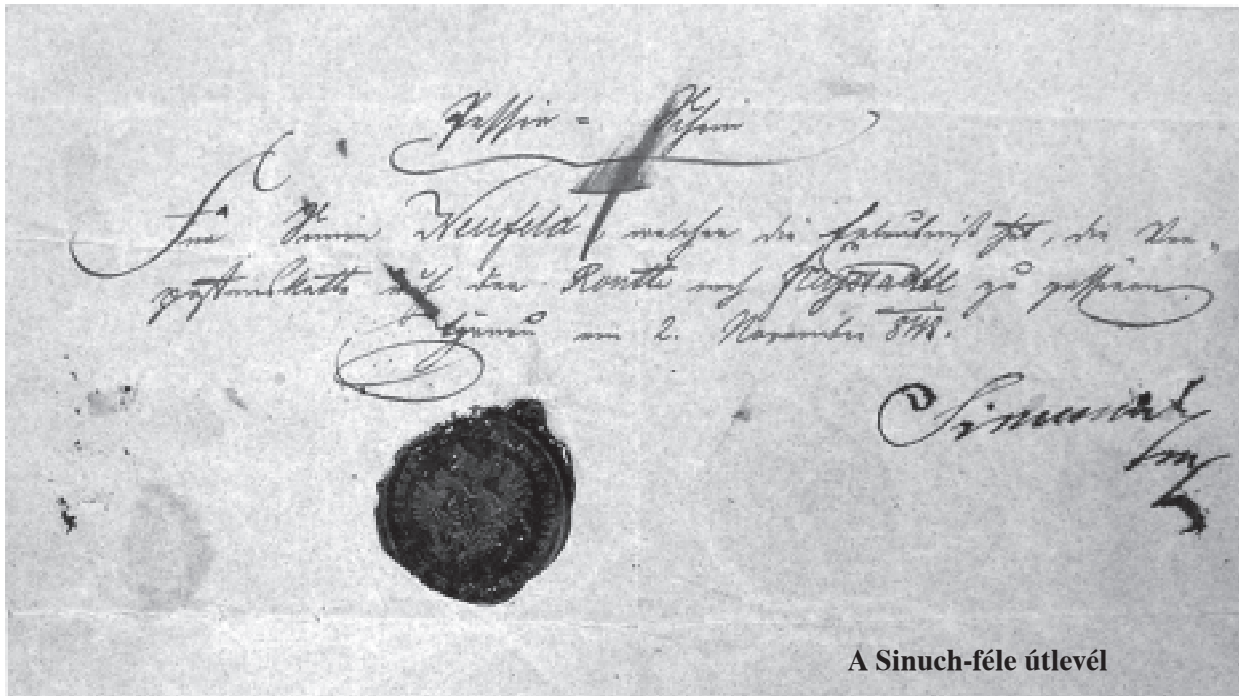 Passir = Schein
Für Neufeld, welcher die Erlaubniß hat, die Vor=
postenkette auf der Routte nach Freystadtl zu passieren.
Tyrnau am 2. November 848.
Simunich
A Sinuch-féle útlevél